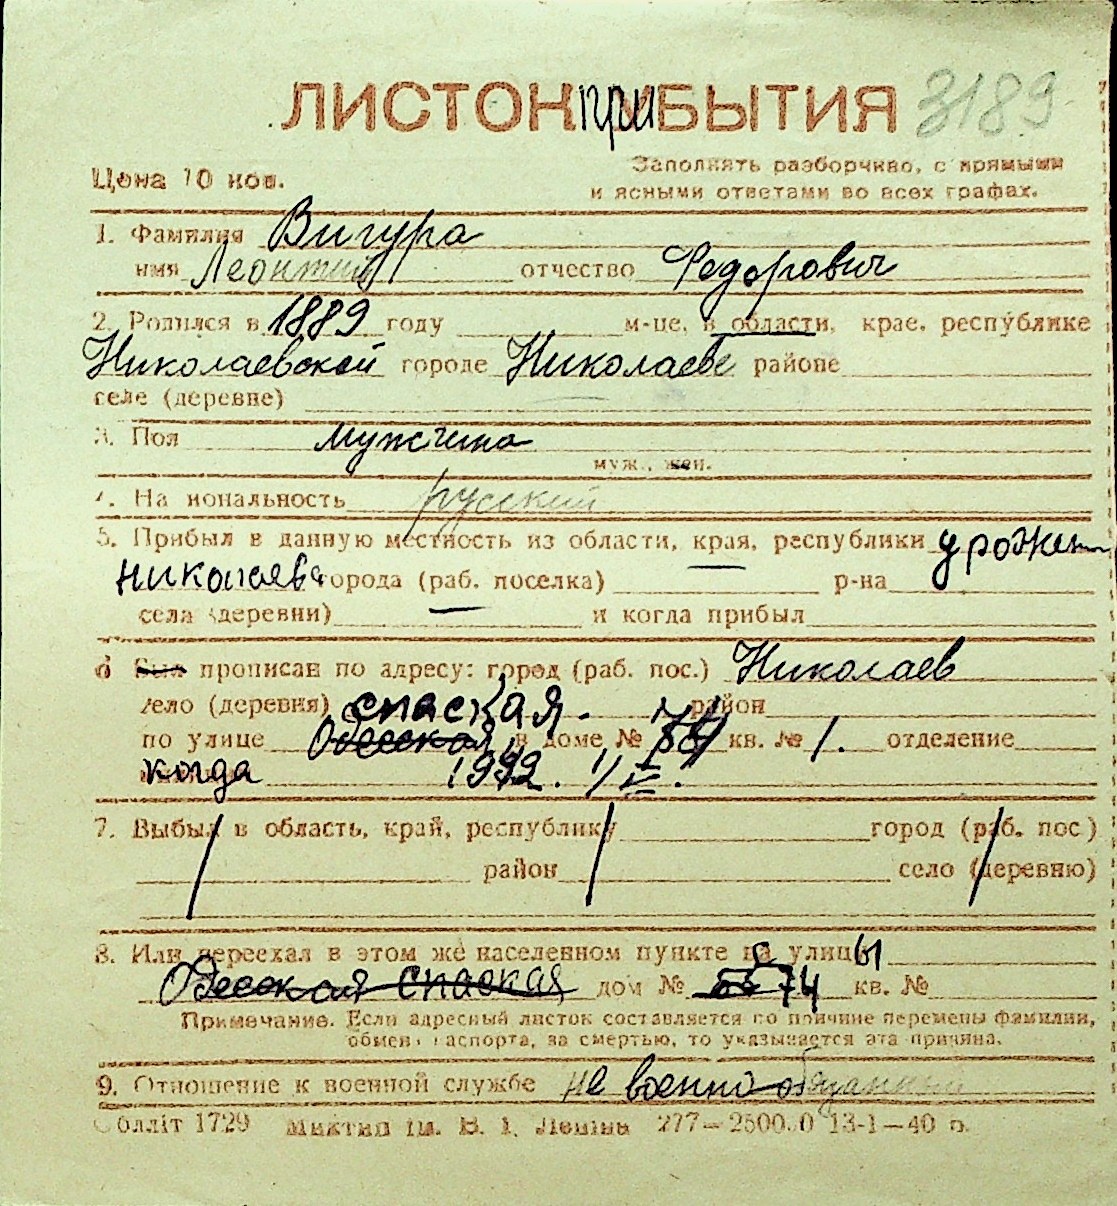 ЛИСТОК ПРИБЫТИЯ 3189
Цена 10 коп.
Заполнять разборчиво, с прямыми
и ясными ответами во всех графах.
1. Фамилия Вигура
имя Леонтий отчество Федорович
2. Родился в 1889 году м-це, в области, крае, республике
Николаевской городе Николаеве районе
селе (деревне)
3. Пол мужчина
муж., жен.
4. Национальность русский
5. Прибыл в данную местность из области, края, республики урожен
Николаева города (раб. поселка) р-на
села (деревни) и когда прибыл
6 Был прописан по адресу: город (раб. пос.) Николаев
село (деревня) спаская. район
по улице Одесская в доме № 74 кв. № 1. отделение
когда 1942. 1/IV.
7. Выбыл в область, край, республику город (раб. пос)
район село (деревню)
8. Или переехал в этом же населенном пункте с улицы
Одесская спаская дом № 74 кв. №
Примечание. Если адресный листок составляется по причине перемены фамилии,
обмена паспорта, за смертью, то указывается эта причина.
9. Отношение к военной службе не военно-обязанный
Облліт 1729 Миктип ім. В. І. Леніна 277—2500.0 13-1—40 р.